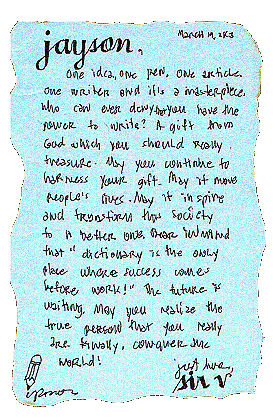 March 19, 2k3
jayson,
One idea, one pen, one article
one writer and it's a masterpiece.
Who can ever deny that you have the
power to write? A gift from
God which you should really
treasure. May you continue to
harness your gift. May it move
people's lives. May it inspire
and transform this society
to a better one. Bear in mind
that "dictionary is the only
place where success comes
before work!" The future is
waiting. May you realize the
true person that you really
are. Finally, conquer the
world!
just here,
sir v